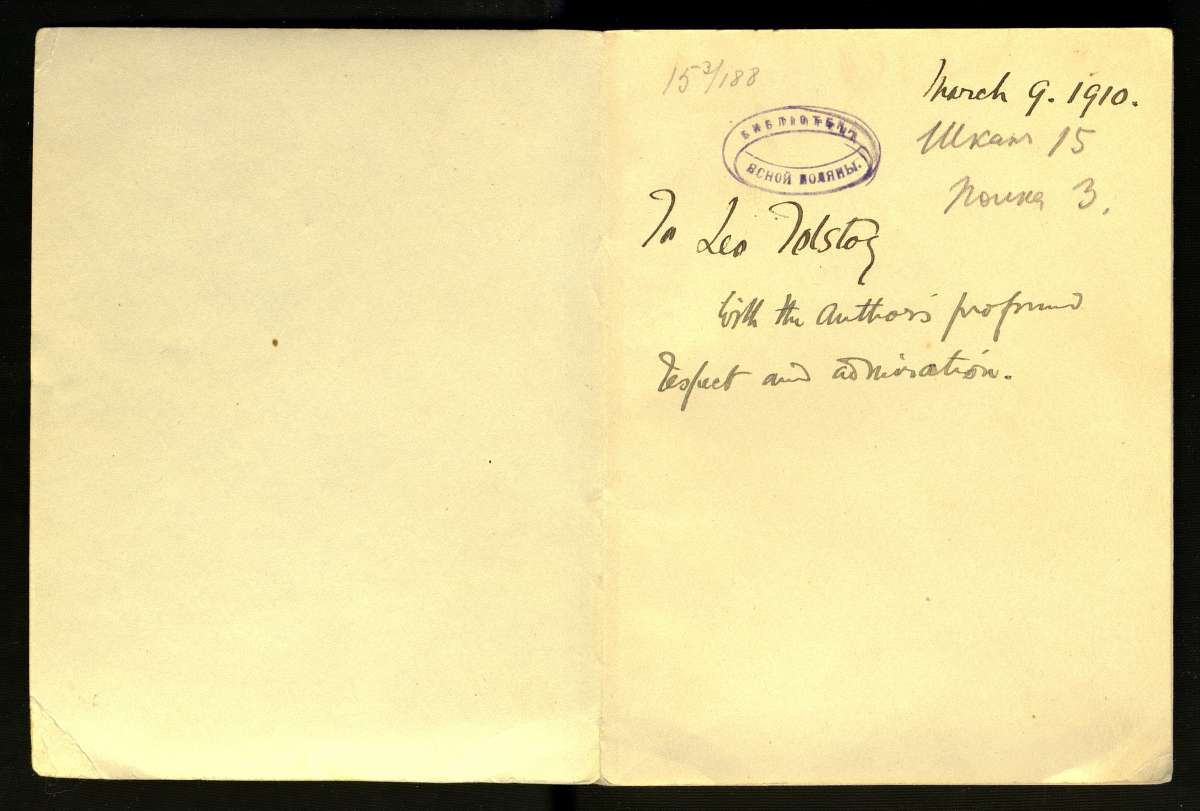 15 3/188
March 9. 1910.
БИБЛIОТЕКА
ЯСНОЙ ПОЛЯНЫ.
Шкап 15
Полка 3.
To Leo Tolstoy
With the author's profound
respect and admiration.